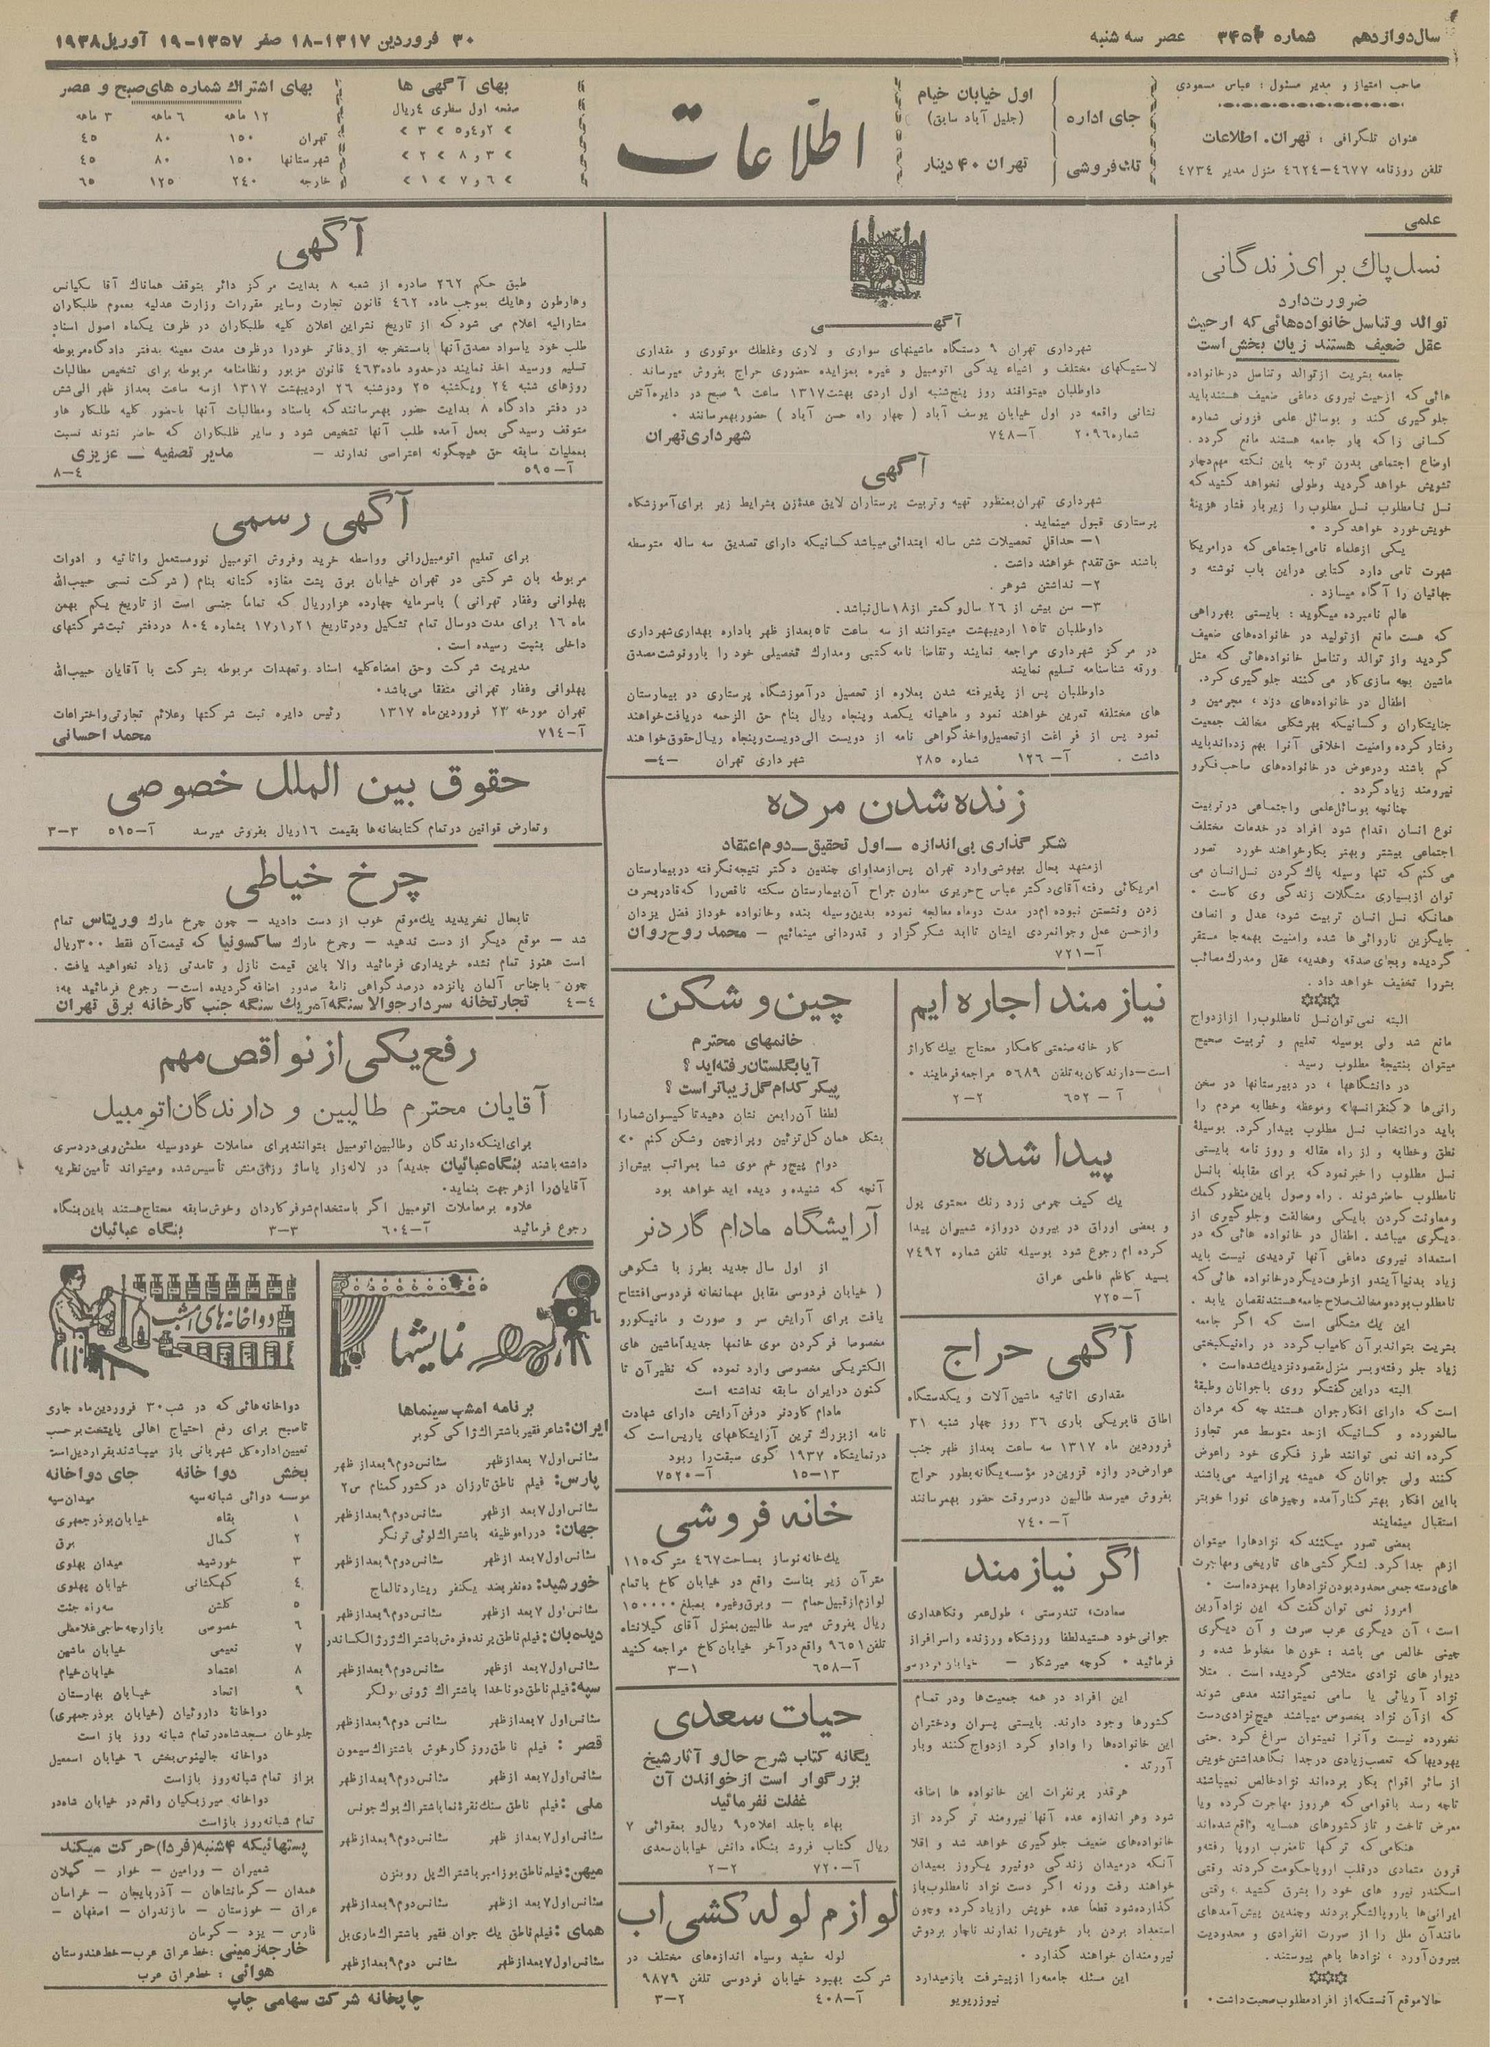 سال دوازدهم شماره ۳۴۵۴ عصر سه شنبه
۳۰ فروردین ۱۳۱۷-۱۸ صفر ۱۳۵۷-۱۹ آوریل ۱۹۳۸
صاحب امتیاز و مدیر مسئول : عباس مسعودی
عنوان تلگرافی : تهران، اطلاعات
تلفن روزنامه ۴۶۷۷-۴۶۲۴ منزل مدیر ۴۷۳۴
جای اداره
اول خیابان خیام
(جلیل آباد سابق)
تک فروشی
تهران ۴۰ دینار
اطلاعات
بهای آگهی ها
صفحه اول سطری ۴ ریال
بهای اشتراك شماره های صبح و عصر
۱۲ ماهه ۶ ماهه ۳ ماهه
تهران ۱۵۰ ۸۰ ۴۵
شهرستانها ۱۵۰ ۸۰ ۴۵
خارجه ۲۴۰ ۱۲۵ ۶۵
علمی
نسل پاك برای زندگانی
ضرورت دارد
توالد و تناسل خانواده هائی که از حیث
عقل ضعیف هستند زیان بخش است
جامعه بشریت از توالد و تناسل در خانواده
هائی که از حیث نیروی دماغی ضعیف هستند باید
جلوگیری کند و بوسائل علمی فزونی شماره
کسانی را که بار جامعه هستند مانع گردد.
اوضاع اجتماعی بدون توجه باین نکته مهم دچار
تشویش خواهد گردید و طولی نخواهد کشید که
نسل نامطلوب نسل مطلوب را زیر بار فشار هزینهٔ
خویش خورد خواهد کرد .
یکی از علماء نامی اجتماعی که در امریکا
شهرت تامی دارد کتابی در این باب نوشته و
جهانیان را آگاه میسازد .
عالم نامبرده میگوید : بایستی بهر راهی
که هست مانع از تولید در خانواده های ضعیف
گردید و از توالد و تناسل خانواده هائی که مثل
ماشین بچه سازی کار می کنند جلوگیری کرد.
اطفال در خانواده های دزد ، مجرمین و
جنایتکاران و کسانیکه بهر شکلی مخالف جمعیت
رفتار کرده و امنیت اخلاقی آنرا بهم زده اند باید
کم باشند و در عوض در خانواده های صاحب فکر و
نیرومند زیاد گردد .
چنانچه بوسائل علمی و اجتماعی در تربیت
نوع انسان اقدام شود افراد در خدمات مختلف
اجتماعی بیشتر و بهتر بکار خواهند خورد تصور
می کنم که تنها وسیله پاك کردن نسل انسان می
توان از بسیاری مشگلات زندگی وی کاست .
همانکه نسل انسان تربیت شود، عدل و انصاف
جایگزین ناروائی ها شده و امنیت بهمه جا مستقر
گردیده و بجای صدقه و هدیه، عقل و مدرك مصائب
بشر را تخفیف خواهد داد .
البته نمی توان نسل نامطلوب را از ازدواج
مانع شد ولی بوسیله تعلیم و تربیت صحیح
میتوان بنتیجهٔ مطلوب رسید .
در دانشگاهها ، در دبیرستانها در سخن
رانی ها «کنفرانسها» و موعظه و خطابه مردم را
باید در انتخاب نسل مطلوب بیدار کرد. بوسیلهٔ
نطق و خطابه و از راه مقاله و روز نامه بایستی
نسل مطلوب را خبر نمود که برای مقابله با نسل
نامطلوب حاضر شوند . راه وصول باین منظور کمك
و معاونت کردن با یکی و مخالفت و جلوگیری از
دیگری میباشد . اطفال در خانواده هائی که در
استعداد نیروی دماغی آنها تردیدی نیست باید
زیاد بدنیا آیند و از طرف دیگر در خانواده هائی که
نامطلوب بوده و مخالف صلاح جامعه هستند نقصان یابد .
این یك مشگلی است که اگر جامعه
بشریت بتواند بر آن کامیاب گردد در راه نیکبختی
زیاد جلو رفته و بسر منزل مقصود نزدیك شده است .
البته در این گفتگو روی با جوانان و طبقهٔ
است که دارای افکار جوان هستند چه که مردان
سالخورده و کسانیکه از حد متوسط عمر تجاوز
کرده اند نمی توانند طرز فکری خود را عوض
کنند ولی جوانان که همیشه پر از امید می باشند
با این افکار بهتر کنار آمده و چیزهای نو را خوبتر
استقبال مینمایند
بعضی تصور میکنند که نژادها را میتوان
از هم جدا کرد. لشگر کشی های تاریخی و مهاجرت
های دسته جمعی محدود بودن نژادها را بهم زده است .
امروز نمی توان گفت که این نژاد آرین
است ، آن دیگری عرب صرف و آن دیگری
چینی خالص می باشد : خون ها مخلوط شده و
دیوار های نژادی متلاشی گردیده است . مثلا
نژاد آریائی یا سامی نمیتوانند مدعی شوند
که از آن نژاد بخصوص میباشند هیچ نژادی دست
نخورده نیست و آنرا نمیتوان سراغ کرد . حتی
یهودیها که تعصب زیادی در جدا نگاهداشتن خویش
از سائر اقوام بکار برده اند نژاد خالص نمیباشند
تا چه رسد با قوامی که هر روز مهاجرت کرده و یا
معرض تاخت و تاز کشورهای همسایه واقع شده اند
هنگامی که ترکها تا مغرب اروپا رفته و
قرون متمادی در قلب اروپا حکومت کردند وقتی
اسکندر نیرو های خود را بشرق کشید ، وقتی
ایرانی ها با روپا لشگر بردند و چندین پیش آمدهای
مانند آن ملل را از صورت انفرادی و محدودیت
بیرون آورد ، نژادها باهم پیوستند .
حالا موقع آنستکه از افراد مطلوب صحبت داشت .
آگهی
شهرداری تهران ۹ دستگاه ماشینهای سواری و لاری و غلطك موتوری و مقداری
لاستیکهای مختلف و اشیاء یدکی اتومبیل و غیره بمزایده حضوری حراج بفروش میرساند .
داوطلبان میتوانند روز پنج شنبه اول اردی بهشت ۱۳۱۷ ساعت ۹ صبح در دایره آتش
نشانی واقعه در اول خیابان یوسف آباد ( چهار راه حسن آباد ) حضور بهمرسانند .
شماره ۲۰۹۶ آ-۷۴۸ شهرداری تهران
آگهی
شهرداری تهران بمنظور تهیه و تربیت پرستاران لایق عده زن بشرایط زیر برای آموزشگاه
پرستاری قبول مینماید .
۱- حداقل تحصیلات شش ساله ابتدائی میباشد کسانیکه دارای تصدیق سه ساله متوسطه
باشند حق تقدم خواهند داشت .
۲- نداشتن شوهر .
۳- سن بیش از ۲۶ سال و کمتر از ۱۸ سال نباشد.
داوطلبان تا ۱۵ اردیبهشت میتوانند از سه ساعت تا ۵ بعد از ظهر باداره بهداری شهرداری
در مرکز شهرداری مراجعه نمایند و تقاضا نامه کتبی و مدارك تحصیلی خود را با رونوشت مصدق
ورقه شناسنامه تسلیم نمایند
داوطلبان پس از پذیرفته شدن بعلاوه از تحصیل در آموزشگاه پرستاری در بیمارستان
های مختلفه تمرین خواهند نمود و ماهیانه یکصد و پنجاه ریال بنام حق الزحمه دریافت خواهند
نمود پس از فراغت از تحصیل و اخذ گواهی نامه از دویست الی دویست و پنجاه ریال حقوق خواهند
داشت . آ-۱۲۶ شماره ۲۸۵ شهرداری تهران -۴-
زنده شدن مرده
شکر گذاری بی اندازه - اول تحقیق - دوم اعتقاد
از مشهد بحال بیهوشی وارد تهران پس از مداوای چندین دکتر نتیجه نگرفته در بیمارستان
امریکائی رفته آقای دکتر عباس حریری معاون جراح آن بیمارستان سکته ناقص را که قادر بحرف
زدن و نشستن نبوده ام در مدت دو ماه معالجه نموده بدین وسیله بنده و خانواده خود از فضل یزدان
و از حسن عمل و جوانمردی ایشان تا ابد شکر گزار و قدردانی مینمائیم - محمد روح روان
آ-۷۲۱
نیازمند اجاره ایم
کار خانه صنعتی کامکار محتاج بیك کاراژ
است - دارندگان به تلفن ۵۶۸۹ مراجعه فرمایند .
آ- ۶۵۲ ۲-۲
پیدا شده
یك کیف چرمی زرد رنك محتوی پول
و بعضی اوراق در بیرون دروازه شمیران پیدا
کرده ام رجوع شود بوسیله تلفن شماره ۷۴۹۲
بسید کاظم فاطمی عراق
آ-۷۲۵
آگهی حراج
مقداری اثاثیه ماشین آلات و یکدستگاه
اطاق فابریکی باری ۳۶ روز چهار شنبه ۳۱
فروردین ماه ۱۳۱۷ سه ساعت بعد از ظهر جنب
عوارض دروازه قزوین در مؤسسه یگانه بطور حراج
بفروش میرسد طالبین در سروقت حضور بهمرسانند
آ-۷۴۰
اگر نیازمند
سعادت، تندرستی ، طول عمر و نگاهداری
جوانی خود هستید لطفا ورزشگاه ورزنده را سرافراز
فرمائید . کوچه میرشکار - خیابان فردوسی
این افراد در همه جمعیت ها و در تمام
کشورها وجود دارند. بایستی پسران و دختران
این خانواده ها را وادار کرد ازدواج کنند و بار
آورند .
هر قدر بر نفرات این خانواده ها اضافه
شود و هر اندازه عده آنها نیرومند تر گردد از
خانواده های ضعیف جلوگیری خواهد شد و اقلا
آنکه در میدان زندگی دو نیرو یکروز بمیدان
خواهند رفت ورنه اگر دست نژاد نامطلوب باز
گذارده شود قطعاً عده خویش را زیاد کرده و چون
استعداد بردن بار خویش را ندارند ناچار بر دوش
نیرومندان خواهند گذارد .
این مسئله جامعه را از پیشرفت باز میدارد
نیوز ریویو
چین و شکن
خانمهای محترم
آیا بگلستان رفته اید ؟
پیکر کدام گل زیباتر است ؟
لطفا آن را بمن نشان دهید تا گیسوان شما را
بشکل همان گل تزئین و پر از چین و شکن کنم
دوام پیچ و خم موی شما بمراتب بیش از
آنچه که شنیده و دیده اید خواهد بود
آرایشگاه مادام گاردنر
از اول سال جدید بطرز با شکوهی
( خیابان فردوسی مقابل مهمانخانه فردوسی افتتاح
یافت برای آرایش سر و صورت و مانیکور و
مخصوصا فر کردن موی خانمها جدیداً ماشین های
الکتریکی مخصوصی وارد نموده که نظیر آن تا
کنون در ایران سابقه نداشته است
مادام گاردنر در فن آرایش دارای شهادت
نامه از بزرگ ترین آرایشگاههای پاریس است که
در نمایشگاه ۱۹۳۷ گوی سبقت را ربود
آ-۷۵۲۰ ۱۳-۱۵
خانه فروشی
یك خانه نوساز بمساحت ۴۶۷ متر که ۱۱۵
متر آن زیر بناست واقع در خیابان کاخ با تمام
لوازم از قبیل حمام - و برق و غیره بمبلغ ۱۵۰۰۰۰
ریال بفروش میرسد طالبین بمنزل آقای گیلانشاه
تلفن ۹۶۵۱ واقع در آخر خیابان کاخ مراجعه کنید
آ-۶۵۸ ۱-۳
حیات سعدی
یگانه کتاب شرح حال و آثار شیخ
بزرگوار است از خواندن آن
غفلت نفرمائید
بهاء با جلد اعلا ۹ ریال و بمقوائی ۷
ریال کتاب فروشی بنگاه دانش خیابان سعدی
آ-۷۲۰ ۲-۲
لوازم لوله کشی اب
لوله سفید و سیاه اندازه های مختلف در
شرکت بهبود خیابان فردوسی تلفن ۹۸۷۹
آ-۴۰۸ ۲-۳
آگهی
طبق حکم ۲۶۲ صادره از شعبه ۸ بدایت مرکز دائر بتوقف همانا ك آقا سکیانس
و هارطون و هایك بموجب ماده ۴۶۲ قانون تجارت و سایر مقررات وزارت عدلیه بعموم طلبکاران
مشارالیه اعلام می شود که از تاریخ نشر این اعلان کلیه طلبکاران در ظرف یکماه اصول اسناد
طلب خود یا سواد مصدق آنها با مستخرجه از دفاتر خود را در ظرف مدت معینه بدفتر دادگاه مربوطه
تسلیم و رسید اخذ نمایند در حدود ماده ۴۶۳ قانون مزبور و نظامنامه مربوطه برای تشخیص مطالبات
روزهای شنبه ۲۴ و یکشنبه ۲۵ و دوشنبه ۲۶ اردیبهشت ۱۳۱۷ از سه ساعت بعد از ظهر الی شش
در دفتر دادگاه ۸ بدایت حضور بهمرسانند که باسناد و مطالبات آنها با حضور کلیه طلبکار ها و
متوقف رسیدگی بعمل آمده طلب آنها تشخیص شود و سایر طلبکاران که حاضر نشوند نسبت
بعملیات سابقه حق هیچگونه اعتراضی ندارند - مدیر تصفیه - عزیزی
آ-۵۹۵ ۴-۸
آگهی رسمی
برای تعلیم اتومبیل رانی و واسطه خرید و فروش اتومبیل نو و مستعمل و اثاثیه و ادوات
مربوطه بان شرکتی در تهران خیابان برق پشت مغازه کتانه بنام ( شرکت نسبی حبیب الله
پهلوانی و غفار تهرانی ) با سرمایه چهارده هزار ریال که تماماً جنسی است از تاریخ یکم بهمن
ماه ۱۶ برای مدت دو سال تمام تشکیل و در تاریخ ۱۷/۱/۲۱ بشماره ۸۰۴ در دفتر ثبت شرکتهای
داخلی بثبت رسیده است .
مدیریت شرکت و حق امضاء کلیه اسناد و تعهدات مربوطه بشرکت با آقایان حبیب الله
پهلوانی و غفار تهرانی متفقا می باشد.
تهران مورخه ۲۳ فروردین ماه ۱۳۱۷ رئیس دایره ثبت شرکتها و علائم تجارتی و اختراعات
آ-۷۱۴ محمد احسانی
حقوق بین الملل خصوصی
و تعارض قوانین در تمام کتابخانه ها بقیمت ۱۶ ریال بفروش میرسد آ-۵۱۵ ۳-۳
چرخ خیاطی
تا بحال نخریدید یك موقع خوب از دست دادید - چون چرخ مارك وریتاس تمام
شد - موقع دیگر از دست ندهید - و چرخ مارك ساکسونیا که قیمت آن فقط ۳۰۰ ریال
است هنوز تمام نشده خریداری فرمائید والا باین قیمت نازل و تا مدتی زیاد نخواهید یافت .
چون با جناس آلمان پانزده درصد گواهی نامهٔ صدور اضافه گردیده است - رجوع فرمائید به:
۴-۴ تجارتخانه سردار جوالا سنگه آمریك سنگه جنب کارخانه برق تهران
رفع یکی از نواقص مهم
آقایان محترم طالبین و دارندگان اتومبیل
برای اینکه دارندگان و طالبین اتومبیل بتوانند برای معاملات خود وسیله مطمئن و بی دردسری
داشته باشند بنگاه عبائیان جدیداً در لاله زار پاساژ رزاق منش تأسیس شده و میتواند تأمین نظریه
آقایان را از هر جهت بنماید.
علاوه بر معاملات اتومبیل اگر باستخدام شوفر کاردان و خوش سابقه محتاج هستند باین بنگاه
رجوع فرمائید آ-۶۰۴ ۳-۳ بنگاه عبائیان
نمایشها
برنامه امشب سینماها
ایران: شاعر فقیر باشتراك ژاکی کوبر
سئانس اول ۷ بعد از ظهر سئانس دوم ۹ بعد از ظهر
پارس: فیلم ناطق تارزان در کشور گمنام س ۲
سئانس اول ۷ بعد از ظهر سئانس دوم ۹ بعد از ظهر
جهان: در راه وظیفه باشتراك لوئی ترنگر
سئانس اول ۷ بعد از ظهر سئانس دوم ۹ بعد از ظهر
خورشید: ده نفر بضد یکنفر ریشارد تالماج
سئانس اول ۷ بعد از ظهر سئانس دوم ۹ بعد از ظهر
دیده بان: فیلم ناطق پرنده فروش باشتراك ژرژ الکساندر
سئانس اول ۷ بعد از ظهر سئانس دوم ۹ بعد از ظهر
سپه: فیلم ناطق دو ناخدا باشتراك ژونی بولگر
سئانس اول ۷ بعد از ظهر سئانس دوم ۹ بعد از ظهر
قصر : فیلم ناطق روزگار خوش باشتراك سیمون
سئانس اول ۷ بعد از ظهر سئانس دوم ۹ بعد از ظهر
ملی : فیلم ناطق سنك نقره نما باشتراك بوك جونس
سئانس اول ۷ بعد از ظهر سئانس دوم ۹ بعد از ظهر
میهن: فیلم ناطق بوزامبر باشتراك پل روبنزن
سئانس اول ۷ بعد از ظهر سئانس دوم ۹ بعد از ظهر
همای: فیلم ناطق یك جوان فقیر باشتراك ماری بل
سئانس اول ۷ بعد از ظهر سئانس دوم ۹ بعد از ظهر
دواخانه های امشب
دواخانه هائی که در شب ۳۰ فروردین ماه جاری
تا صبح برای رفع احتیاج اهالی پایتخت بر حسب
تعیین اداره کل شهربانی باز میباشند بقرار ذیل است
بخش دوا خانه جای دواخانه
موسسه دوائی شبانه سپه میدان سپه
۱ بقاء خیابان بوذرجمهری
۲ کمال برق
۳ خورشید میدان پهلوی
۴ کهکشانی خیابان پهلوی
۵ گلشن سه راه جنت
۶ خصوصی بازارچه حاجی غلامعلی
۷ نعیمی خیابان ماشین
۸ اعتماد خیابان خیام
۹ اتحاد خیابان بهارستان
دواخانهٔ داروئیان (خیابان بوذر جمهری)
جلوخان مسجد شاه در تمام شبانه روز باز است
دواخانه جالینوس بخش ۶ خیابان اسمعیل
بزاز تمام شبانه روز باز است
دواخانه میرزیکیان واقع در خیابان شاه در
تمام شبانه روز باز است
پستهائیکه ۴ شنبه (فردا) حرکت میکند
شمیران - ورامین - خوار - گیلان
همدان - کرمانشاهان - آذربایجان - خراسان
عراق - خوزستان - مازندران - اصفهان -
فارس - یزد - کرمان
خارجه زمینی : خط عراق عرب - خط هندوستان
هوائی : خط عراق عرب
چاپخانه شرکت سهامی چاپ